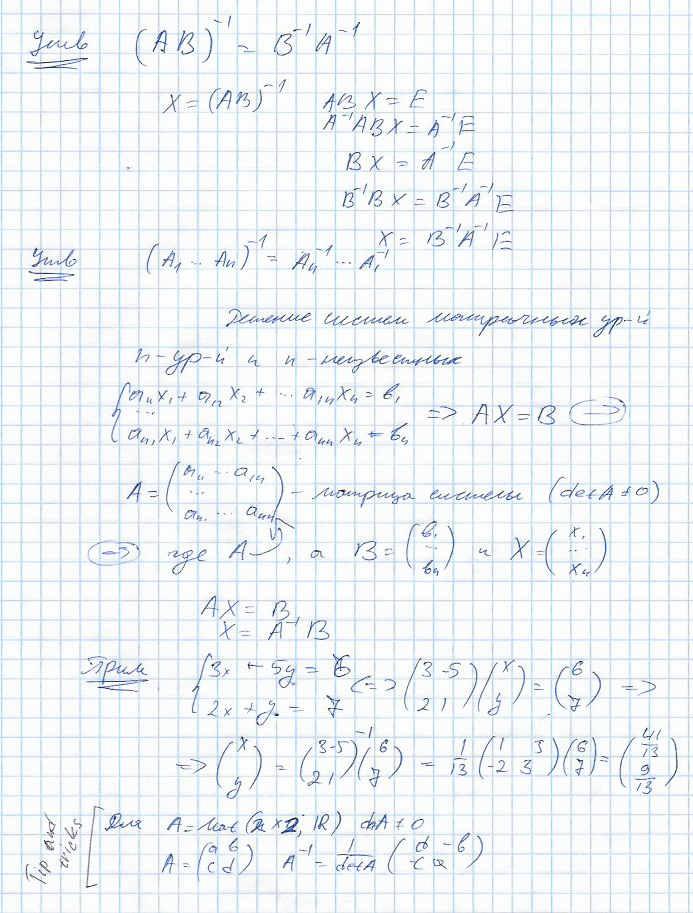 Утв (AB)⁻¹ = B⁻¹A⁻¹
X = (AB)⁻¹ ABX = E
A⁻¹ABX = A⁻¹E
BX = A⁻¹E
B⁻¹BX = B⁻¹A⁻¹E
X = B⁻¹A⁻¹E
Утв (A₁ ... Aₙ)⁻¹ = Aₙ⁻¹ ... A₁⁻¹
Решение систем матричных ур-й
n-ур-й и n-неизвестных
{ a₁₁x₁ + a₁₂x₂ + ... a₁ₙxₙ = b₁
... => AX = B (=>)
aₙ₁x₁ + aₙ₂x₂ + ... + aₙₙxₙ = bₙ
A = (a₁₁ ... a₁ₙ ... aₙ₁ ... aₙₙ) - матрица системы (det A ≠ 0)
(=>) где A, а B = (b₁ ... bₙ) и X = (x₁ ... xₙ)
AX = B
X = A⁻¹B
Прим { 3x - 5y = 6 <=> (3 -5 2 1)(x y) = (6 7) =>
2x + y = 7
=> (x y) = (3 -5 2 1)⁻¹(6 7) = 1/13 (1 3 -2 3)(6 7) = (41/13 9/13)
Tip and tricks
Для A = Mat(2x2, IR) det A ≠ 0
A = (a b c d) A⁻¹ = 1/det A (d -b -c a)